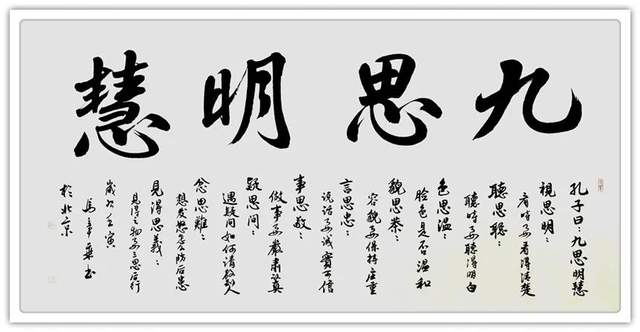 九思明慧
孔子曰：九思明慧
視思明：
看时要看得清楚
聽思聰：
聽時要聽得明白
色思温：
脸色是否温和
貌思恭：
容貌要保持庄重
言思忠：
说话要诚實可信
事思敬：
做事要嚴肅认真
疑思问：
遇疑问如何请教别人
忿思難：
想发怒怎么防后患
見得思義：
見得之物要三思后行
歲次壬寅
馬 书
於北京